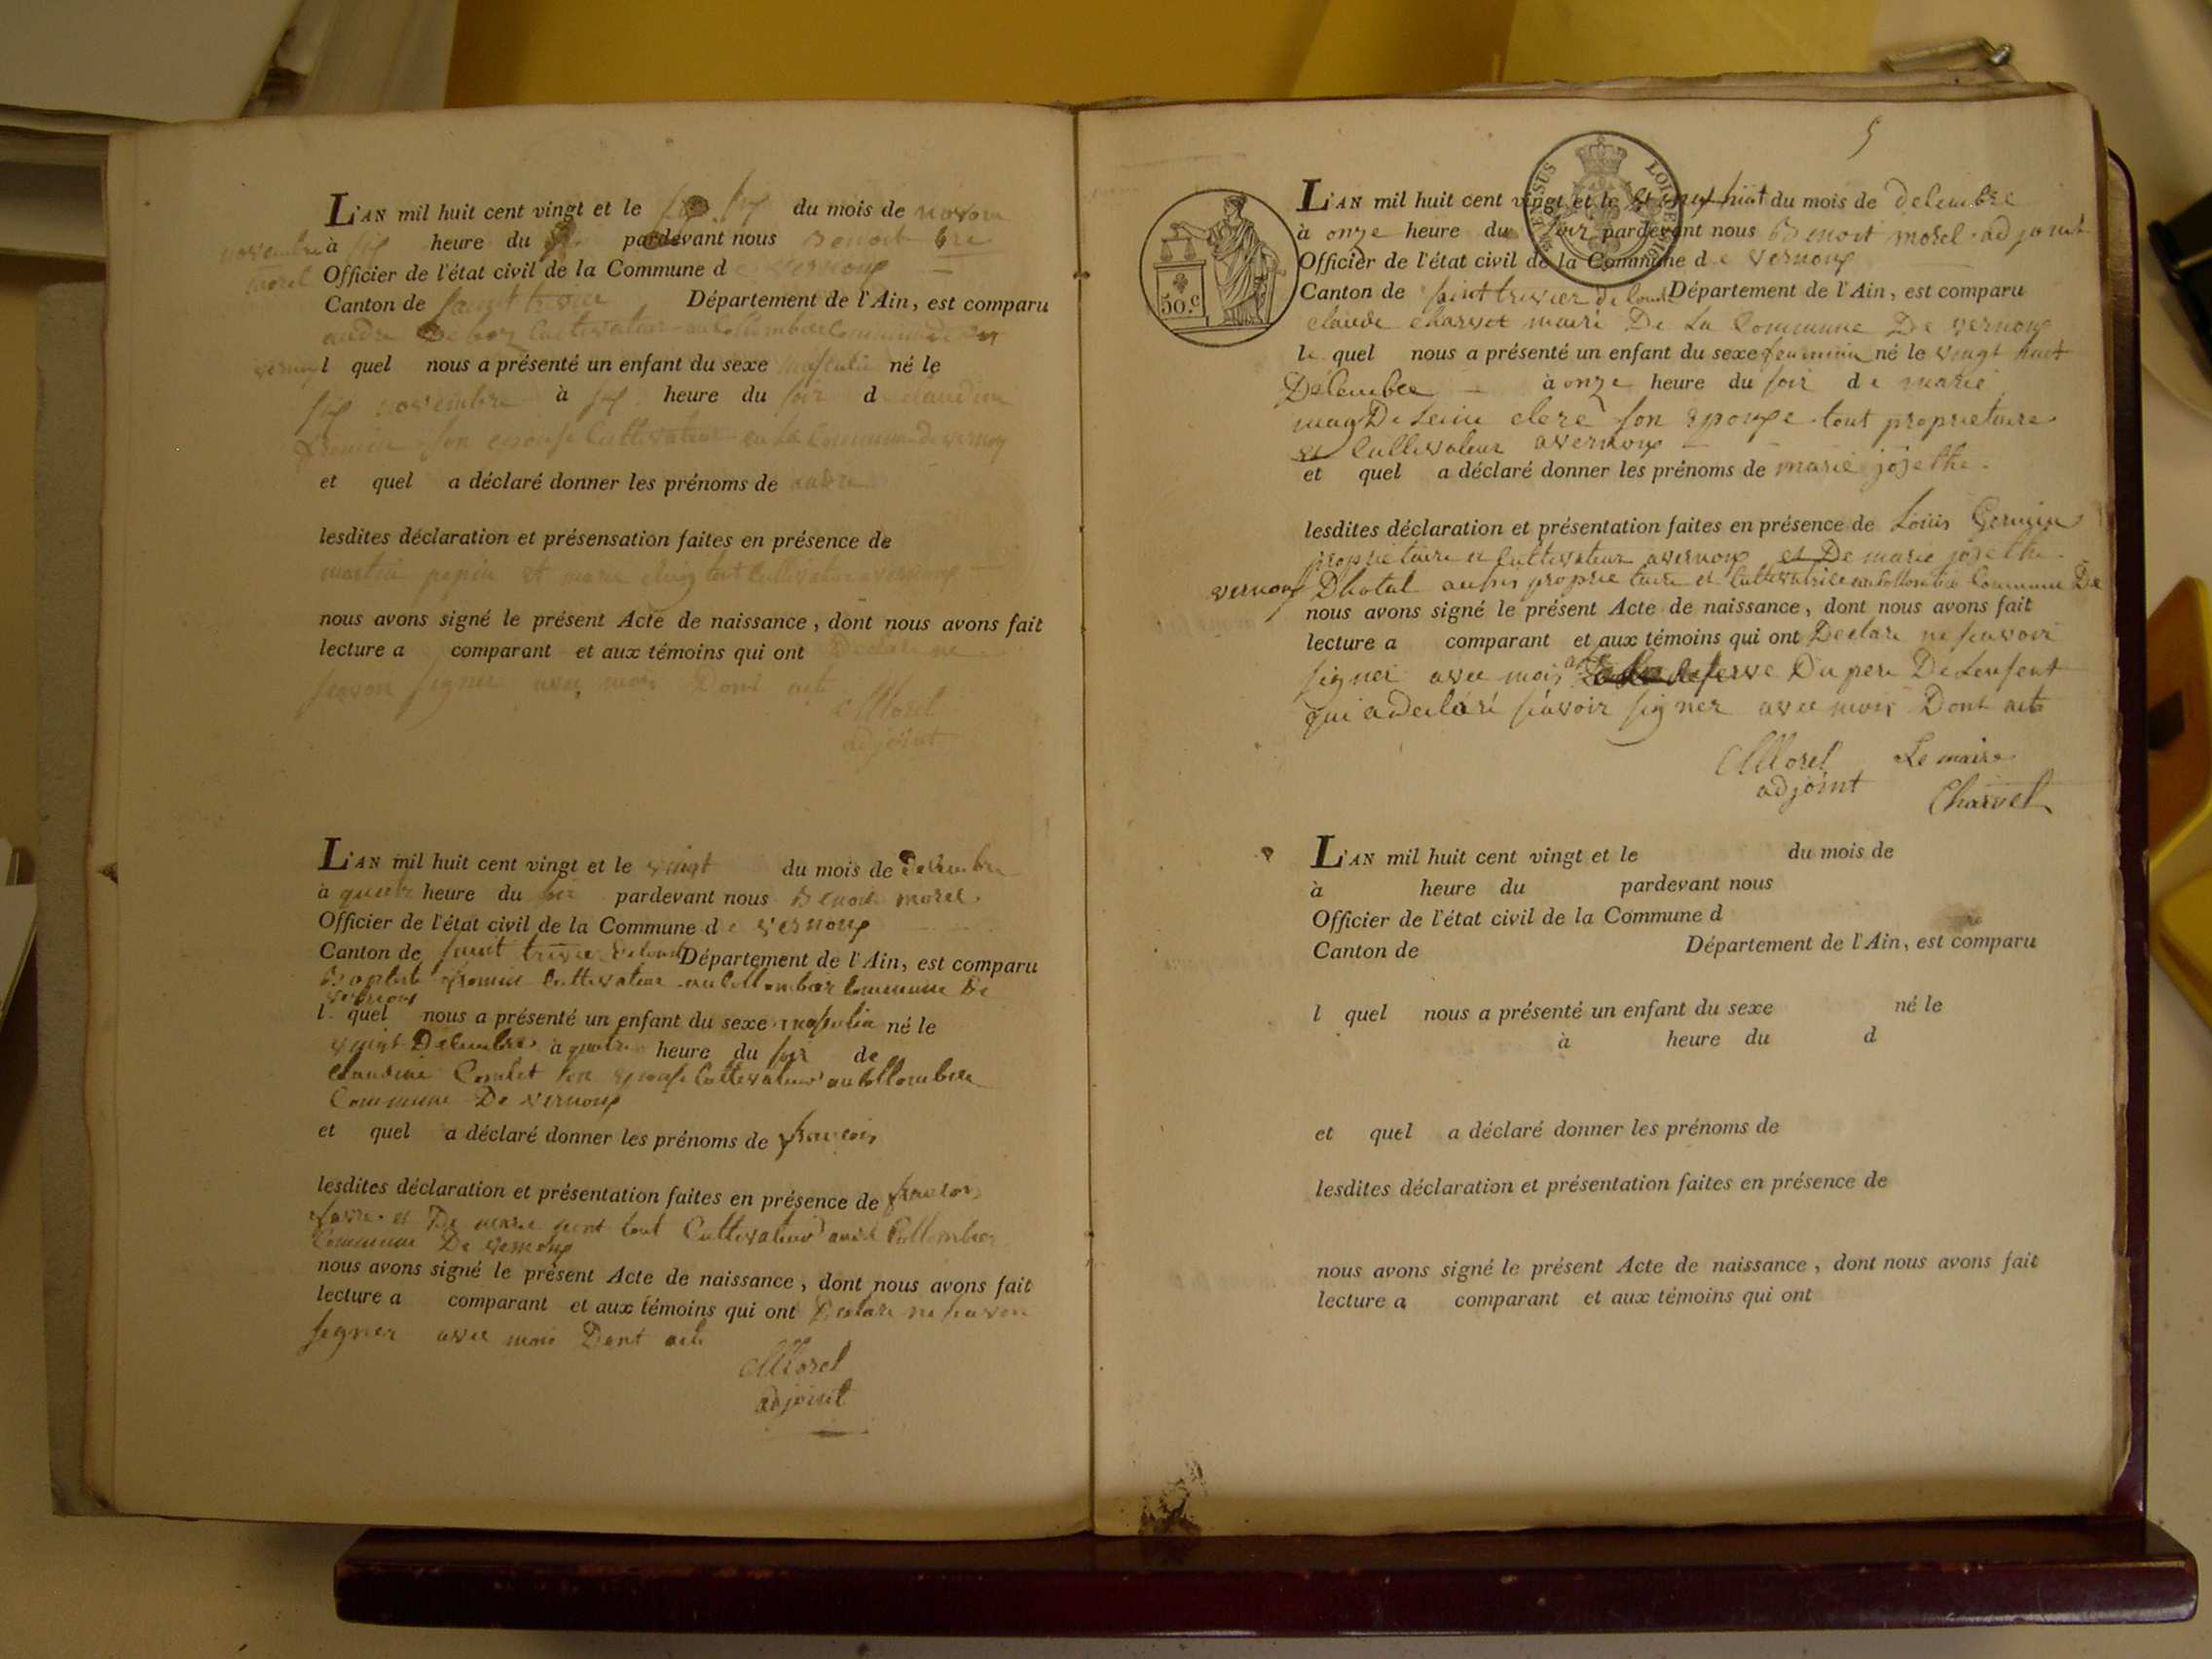 L'AN mil huit cent vingt et le six du mois de
novembre à six heure du pardevant nous Benoit
morel Officier de l'état civil de la Commune de vernoux
Canton de saint trivier Département de l'Ain, est comparu
andre cultivateur au Collombier Commune de
vernoux l quel nous a présenté un enfant du sexe masculin né le
six novembre à six heure du soir d claudine
son epouse Cultivateur en la Commune de vernoux
et quel a déclaré donner les prénoms de andre
lesdites déclaration et présensation faites en présence de
martin pepin et marie tout Cultivateur a vernoux
nous avons signé le présent Acte de naissance, dont nous avons fait
lecture a comparant et aux témoins qui ont Declare ne
savoir signer avec mois Dont acte
Morel
adjoint
L'AN mil huit cent vingt et le vingt du mois de decembre
à quatre heure du soir pardevant nous Benoit morel
Officier de l'état civil de la Commune de vernoux
Canton de saint trivier de Département de l'Ain, est comparu
Cultivateur au Collombier Commune De
vernoux
l quel nous a présenté un enfant du sexe masculin né le
vingt Decembre à quatre heure du soir de
claudine son epouse Cultivateur au Collombier
Commune De vernoux
et quel a déclaré donner les prénoms de francois
lesdites déclaration et présentation faites en présence de francois
et De marie tout Cultivateur Collombier
Commune De vernoux
nous avons signé le présent Acte de naissance, dont nous avons fait
lecture a comparant et aux témoins qui ont Declare ne savoir
signer avec mois Dont acte
Morel
adjoint
5
50 c
LOI DE
L'AN mil huit cent vingt et le vingt huit du mois de decembre
à onze heure du soir pardevant nous Benoit morel adjoint
Officier de l'état civil de la Commune de vernoux
Canton de saint trivier de Département de l'Ain, est comparu
claude Charvet maire De La Commune De vernoux
le quel nous a présenté un enfant du sexe feminin né le vingt huit
Decembre à onze heure du soir de marie
magDeleine clere son epouse tout proprietaire
et Cultivateur a vernoux
et quel a déclaré donner les prénoms de marie jozethe
lesdites déclaration et présentation faites en présence de Louis
proprietaire et Cultivateur a vernoux et De marie jozethe
vernoux Dhotal aussi proprietaire et Cultivatrice au Collombier Commune De
nous avons signé le présent Acte de naissance, dont nous avons fait
lecture a comparant et aux témoins qui ont Declare ne savoir
signer avec mois Du pere De Lenfent
qui a declaré savoir signer avec mois Dont acte
Morel Le maire
adjoint Charvet
L'AN mil huit cent vingt et le du mois de
à heure du pardevant nous
Officier de l'état civil de la Commune d
Canton de Département de l'Ain, est comparu
l quel nous a présenté un enfant du sexe né le
à heure du d
et quel a déclaré donner les prénoms de
lesdites déclaration et présentation faites en présence de
nous avons signé le présent Acte de naissance, dont nous avons fait
lecture a comparant et aux témoins qui ont